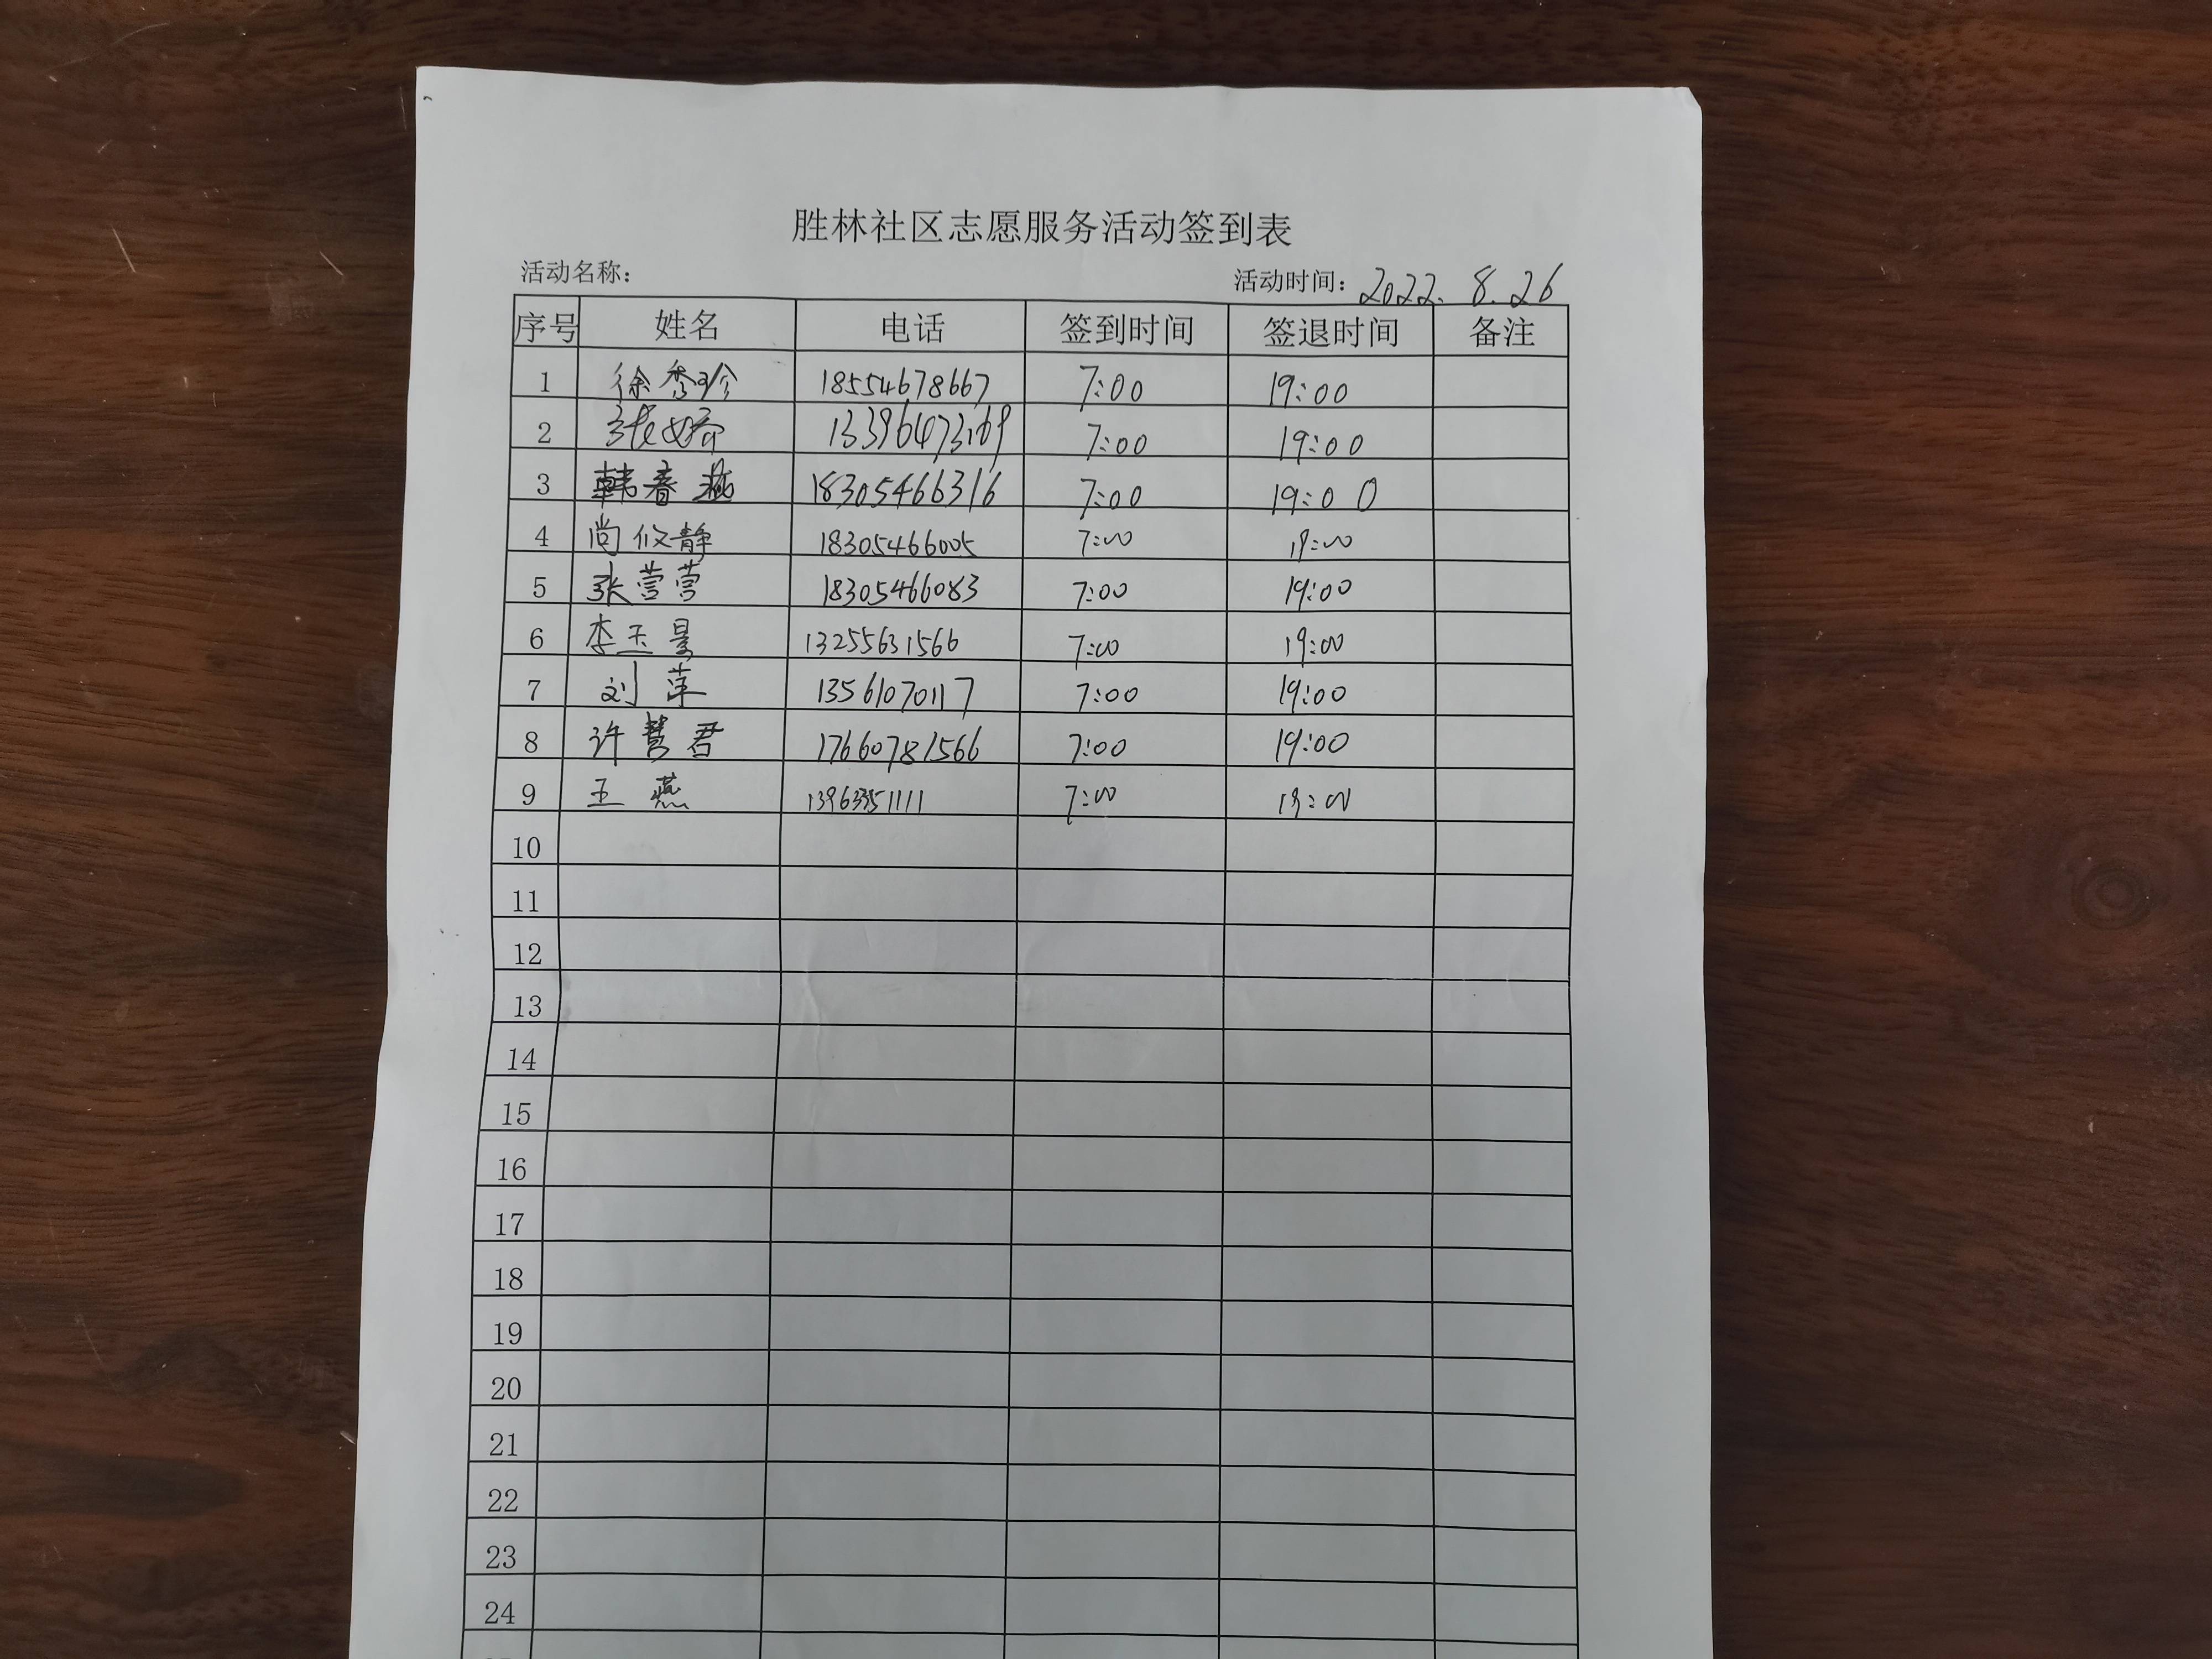 胜林社区志愿服务活动签到表
活动名称： 活动时间：2022.8.26
序号 姓名 电话 签到时间 签退时间 备注
1 徐秀珍 18554678667 7:00 19:00
2 张婷 13396473169 7:00 19:00
3 韩春燕 18305466316 7:00 19:00
4 尚俊静 18305466005 7:00 19:00
5 张营营 18305466083 7:00 19:00
6 李玉景 13255631566 7:00 19:00
7 刘萍 13561070117 7:00 19:00
8 许慧君 17660781566 7:00 19:00
9 王燕 13963351111 7:00 19:00
10
11
12
13
14
15
16
17
18
19
20
21
22
23
24